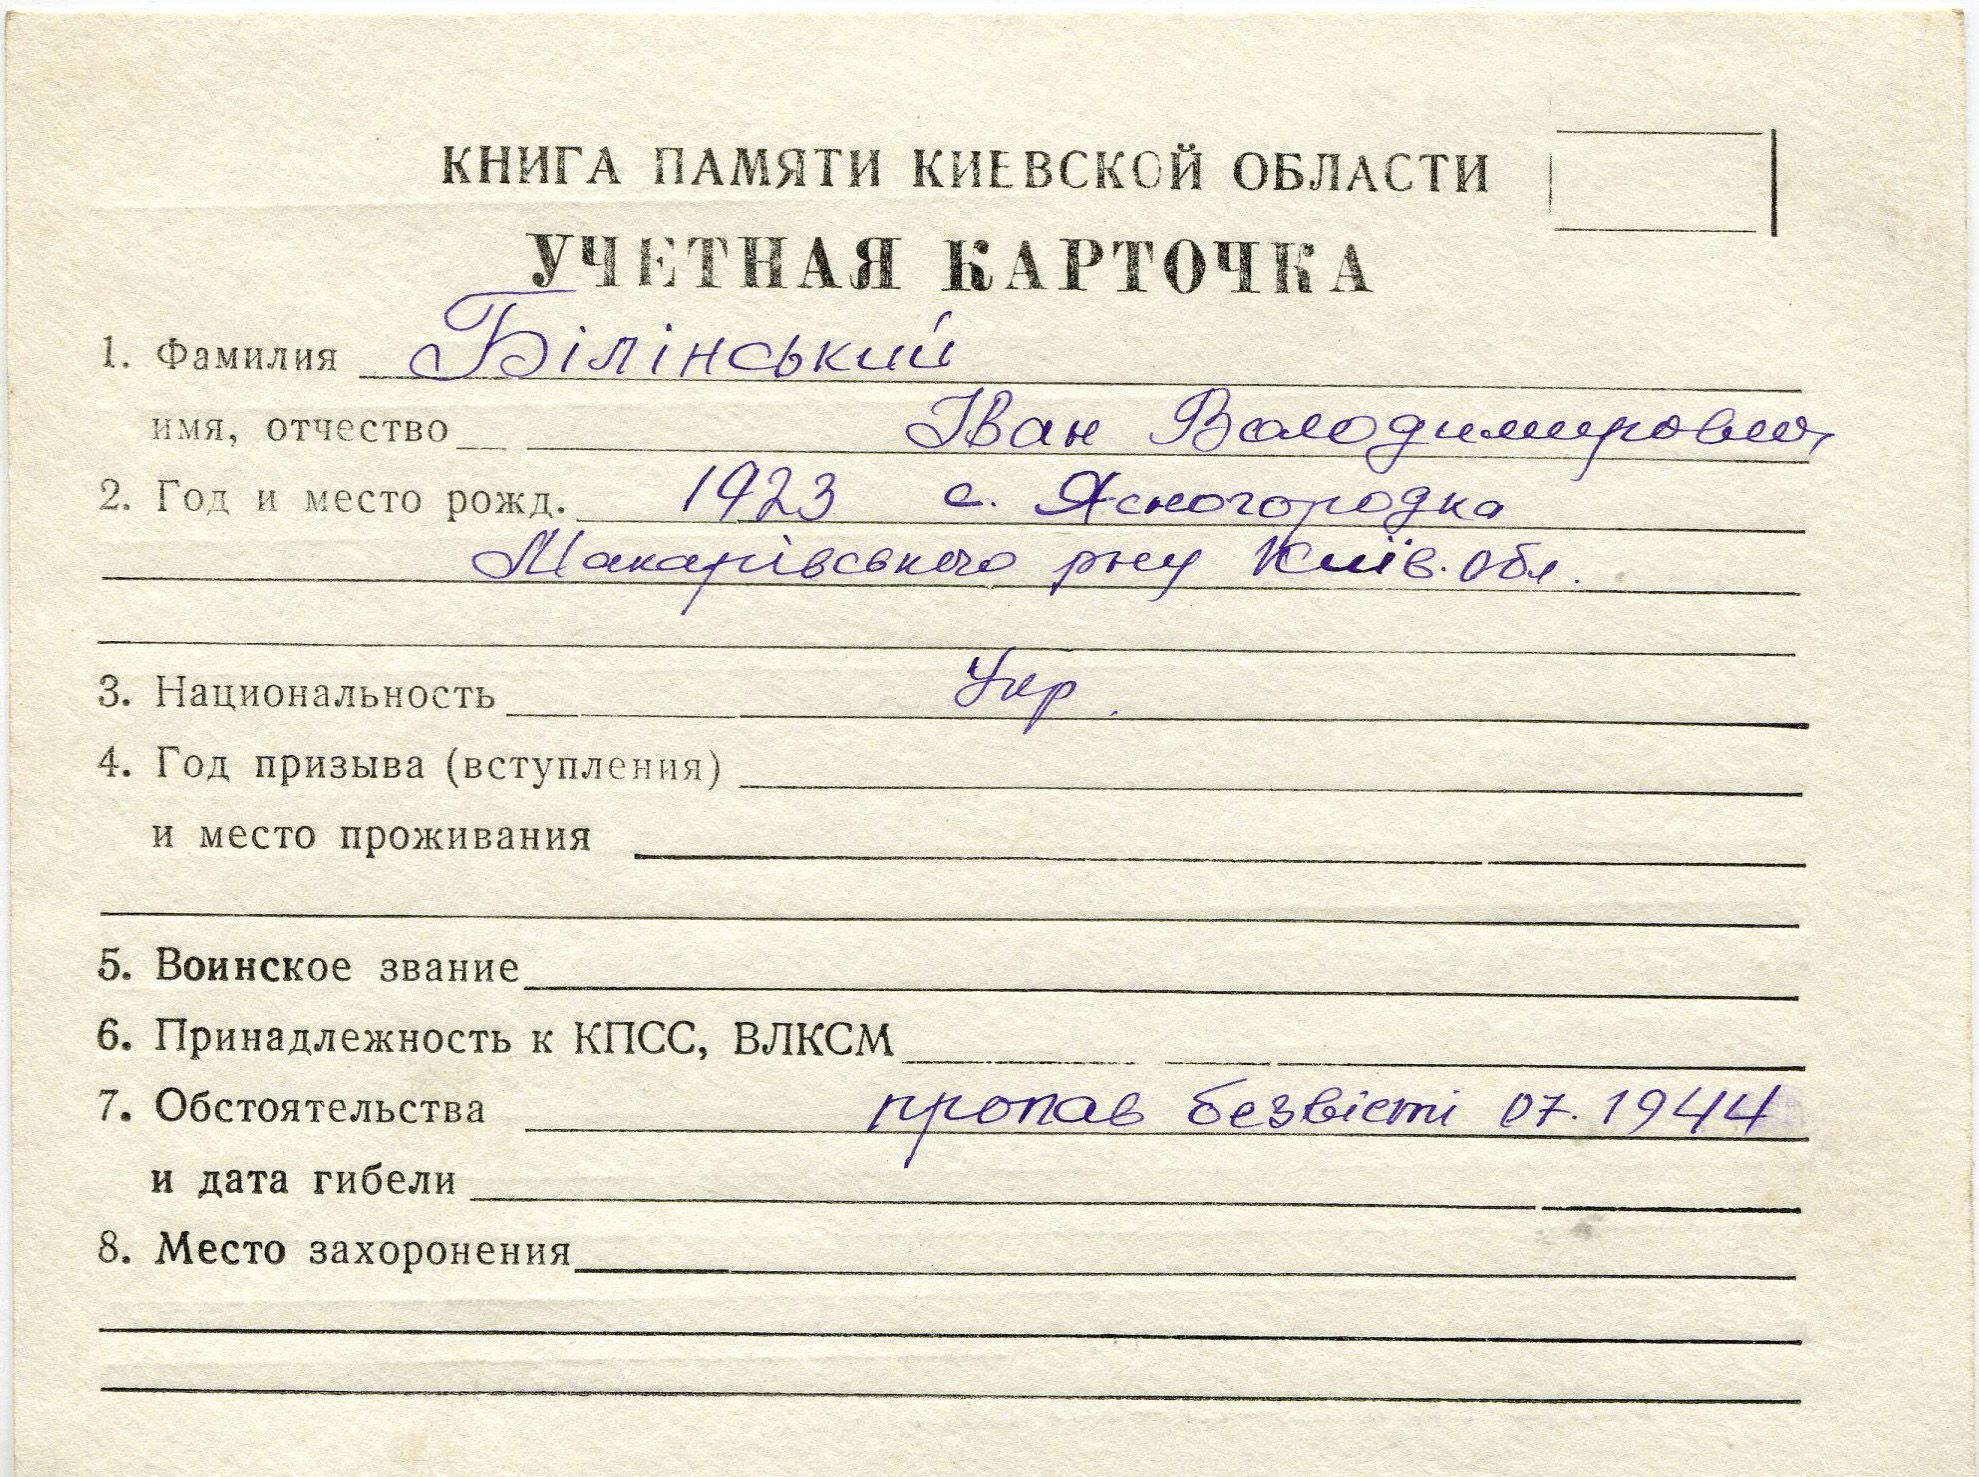 КНИГА ПАМЯТИ КИЕВСКОЙ ОБЛАСТИ
УЧЕТНАЯ КАРТОЧКА
1. Фамилия Білінський
имя, отчество Іван Володимирович
2. Год и место рожд. 1923 с. Ясногородка
Макарівського р-ну Київ. обл.
3. Национальность Укр.
4. Год призыва (вступления)
и место проживания
5. Воинское звание
6. Принадлежность к КПСС, ВЛКСМ
7. Обстоятельства пропав безвісті 07.1944
и дата гибели
8. Место захоронения